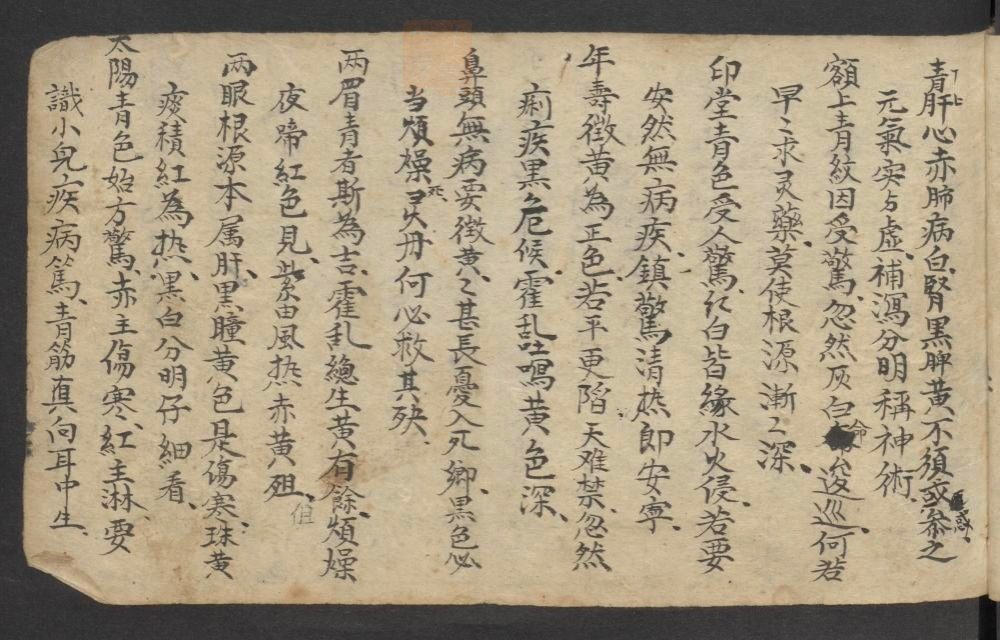 青肝心赤肺病白、腎黑脾黄不須或叅之惑、
元氣实与虚、補瀉分明稱神術、
額上青紋因受驚、忽然灰白命逡巡、何若
早〻求灵藥、莫使根源漸〻深、
印堂青色受人驚、红白皆緣水火侵、若要
安然無病疾、鎮驚清热即安寕、
年壽徴黄為正色、若平更陷夭难禁、忽然
痢疾黑危候、霍乱吐鳴黄色深、
鼻頭無病要徴黄、〻甚長憂入死鄉、黒色必
当煩燥死、何必救其殃、
兩眉青者斯為吉、霍乱總生黄有餘、煩燥
夜啼紅色見、紫由風热赤黄殂、但
兩眼根源本属肝、黒瞳黄色是傷寒、珠黄
痰積紅為热、黒白分明仔細看、
太陽青色始方驚、赤主傷寒、紅主淋、要
識小兒疾病篤、青筋直向耳中生、